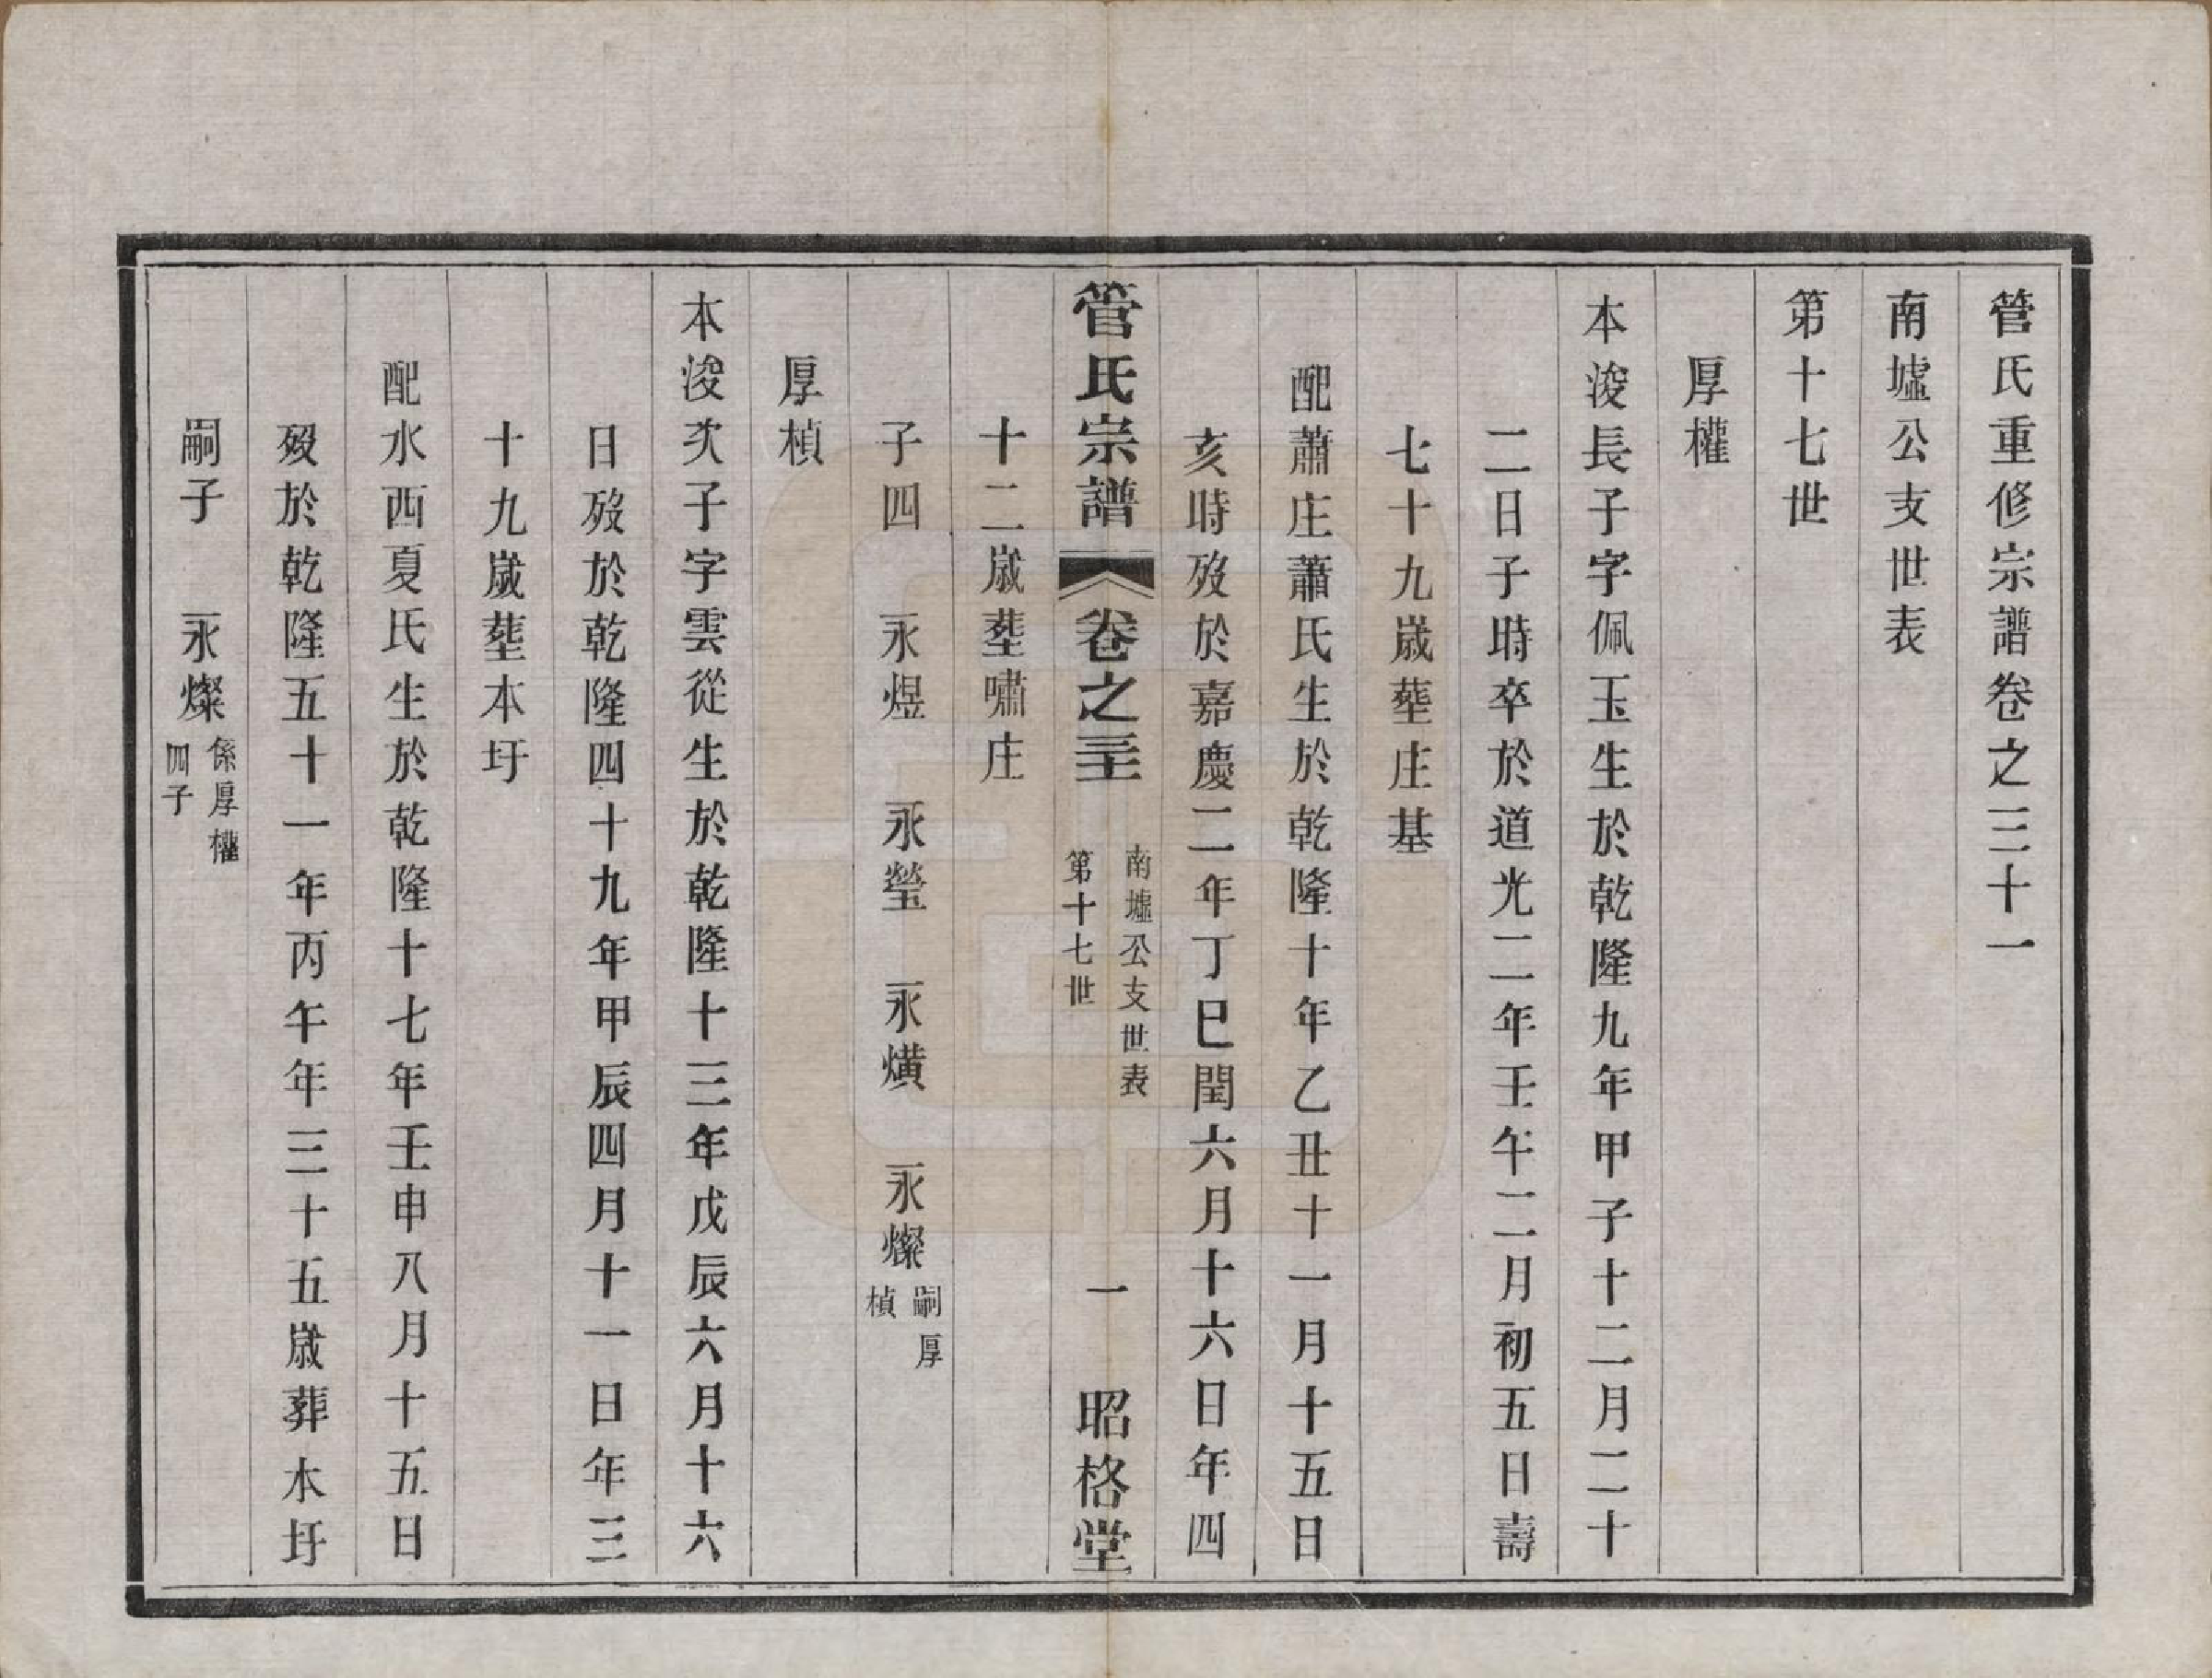 管氏重修宗譜卷之三十一
南墟公支世表
第十七世
厚權
本浚長子字佩玉生於乾隆九年甲子十二月二十
二日子時卒於道光二年壬午二月初五日壽
七十九歲塟庄基
配蕭庄蕭氏生於乾隆十年乙丑十一月十五日
亥時歿於嘉慶二年丁巳閏六月十六日年四
管氏宗譜 卷之三十一 南墟公支世表 第十七世 一 昭格堂
十二歲塟嘯庄
子四 永煜 永瑩 永熿 永燦 嗣厚楨
厚楨
本浚次子字雲從生於乾隆十三年戊辰六月十六
日歿於乾隆四十九年甲辰四月十一日年三
十九歲塟本圩
配水西夏氏生於乾隆十七年壬申八月十五日
歿於乾隆五十一年丙午年三十五歲葬木圩
嗣子 永燦 係厚權四子